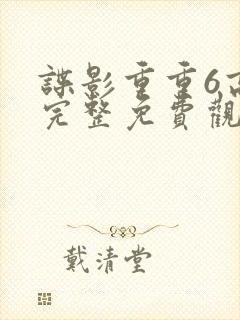 諜影重重6高
完整免費觀
戴清堂